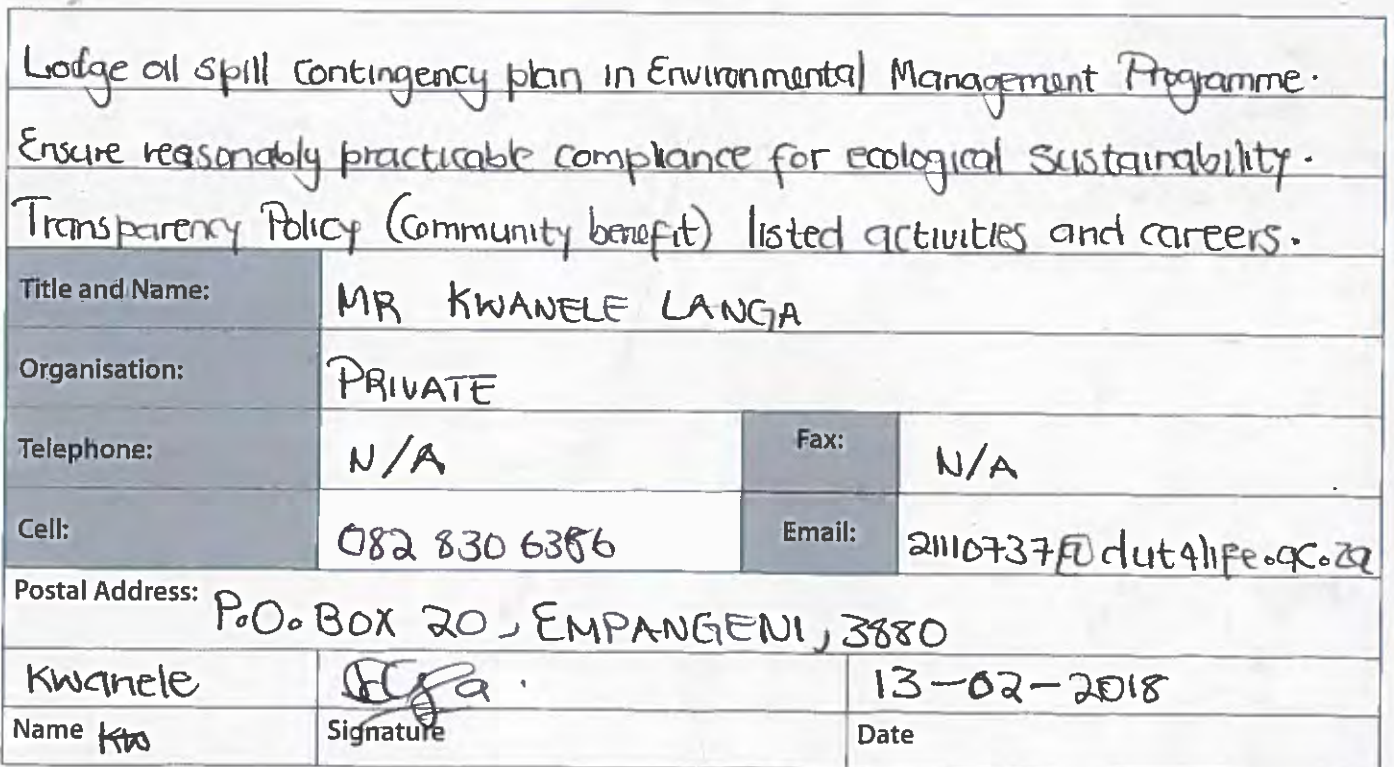 Lodge oil spill contingency plan in Environmental Management Programme.
Ensure reasonably practicable compliance for ecological sustainability.
Transparency Policy (Community benefit) listed activities and careers.
Title and Name: MR KWANELE LANGA
Organisation: PRIVATE
Telephone: N/A Fax: N/A
Cell: 082 830 6386 Email: 21110737@dut4life.ac.za
Postal Address: P.O. BOX 20, EMPANGENI, 3880
Kwanele 13-02-2018
Name Kw Signature Date